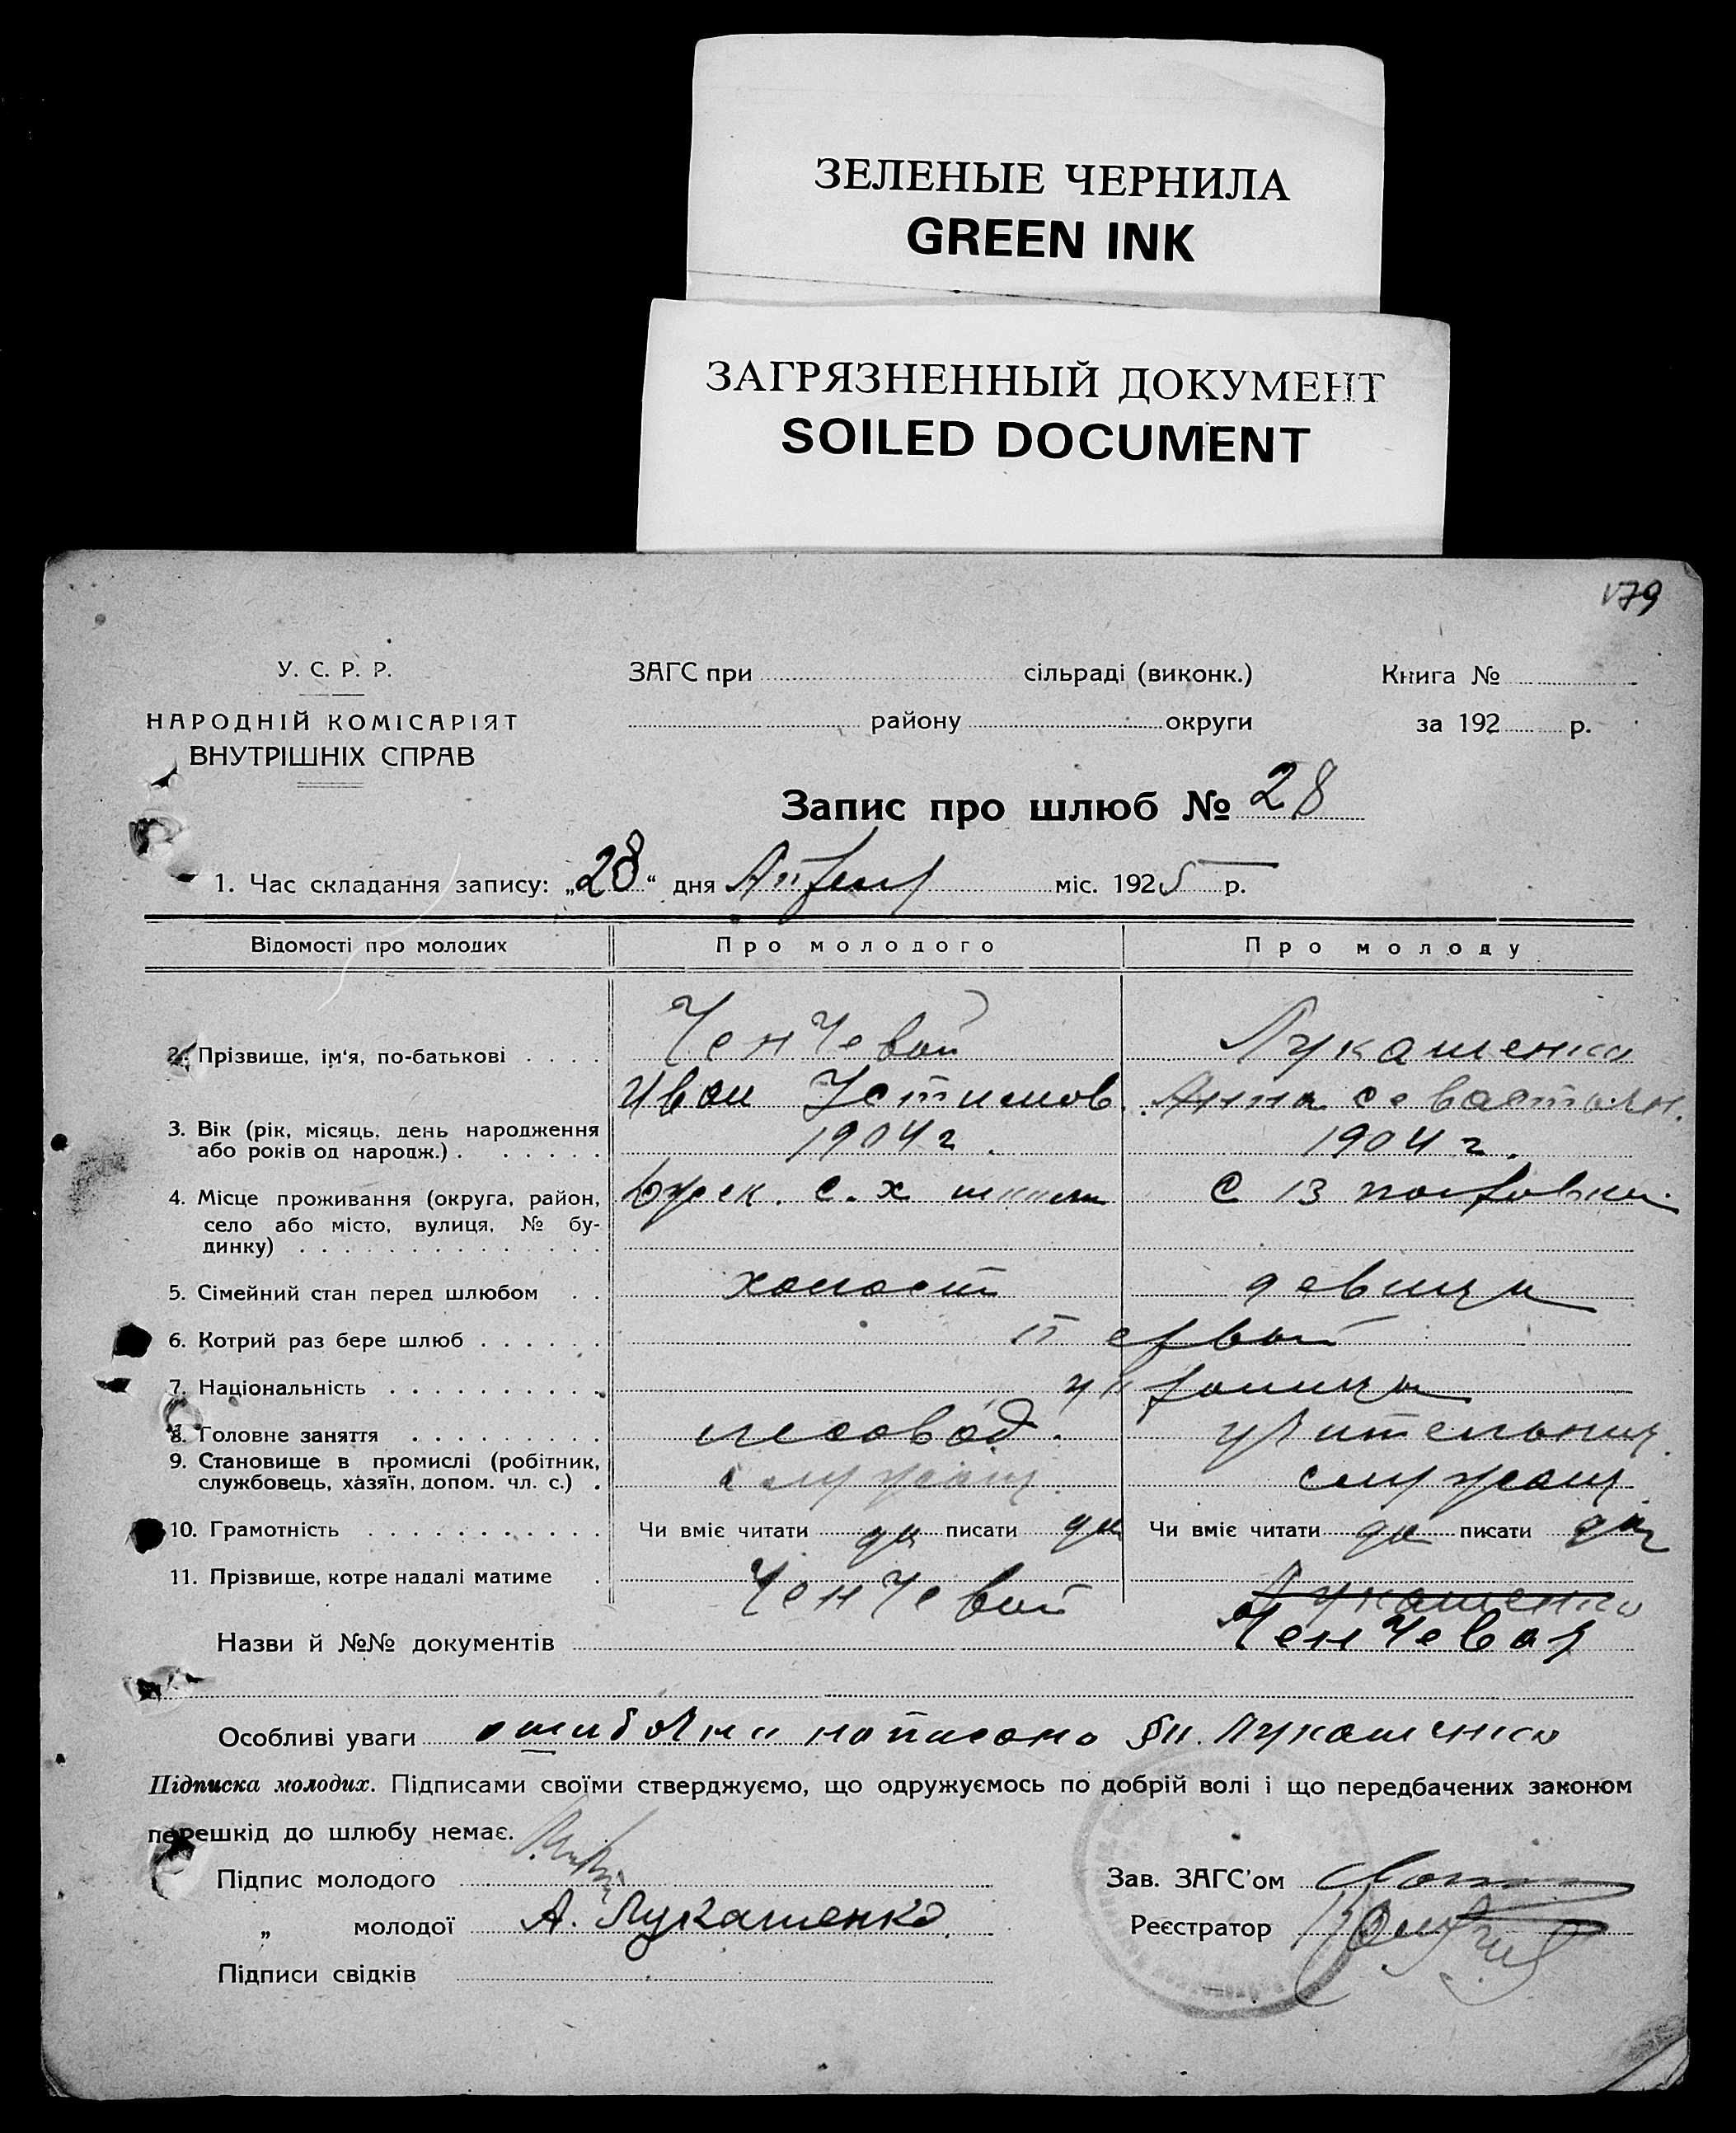 ЗЕЛЕНЫЕ ЧЕРНИЛА
GREEN INK
ЗАГРЯЗНЕННЫЙ ДОКУМЕНТ
SOILED DOCUMENT
179
У. С. Р. Р.
НАРОДНІЙ КОМІСАРІЯТ
ВНУТРІШНІХ СПРАВ
ЗАГС при сільраді (виконк.)
району округи
Книга №
за 192 р.
Запис про шлюб № 28
1. Час складання запису: „28“ дня Апреля міс. 1925 р.
Відомості про молодих Про молодого Про молоду
2. Прізвище, ім'я, по-батькові . . . . Ченчевой Лукашенко
Иван Устимов. Анна Севастьян.
3. Вік (рік, місяць, день народження
або років од народж.) . . . . . . 1904 г. 1904 г.
4. Місце проживання (округа, район, с. х школи С
село або місто, вулиця, № бу-
динку) . . . . . . . . . . . . . .
5. Сімейний стан перед шлюбом . . холост девица
6. Котрий раз бере шлюб . . . . . . первой
7. Національність . . . . . . . . . . украинцы
8. Головне заняття . . . . . . . . . лесовод. учительниц.
9. Становище в промислі (робітник,
службовець, хазяїн, допом. чл. с.) . служащ. служащ.
10. Грамотність . . . . . . . . . . . Чи вміє читати да писати да Чи вміє читати да писати да
11. Прізвище, котре надалі матиме . Ченчевой Лукашенко
Ченчевая
Назви й №№ документів
Особливі уваги ошибочно написано Лукашенко
Підписка молодих. Підписами своїми стверджуємо, що одружуємось по добрій волі і що передбачених законом
перешкід до шлюбу немає.
Підпис молодого
„ молодої А. Лукашенко
Підписи свідків
Зав. ЗАГС'ом
Реєстратор